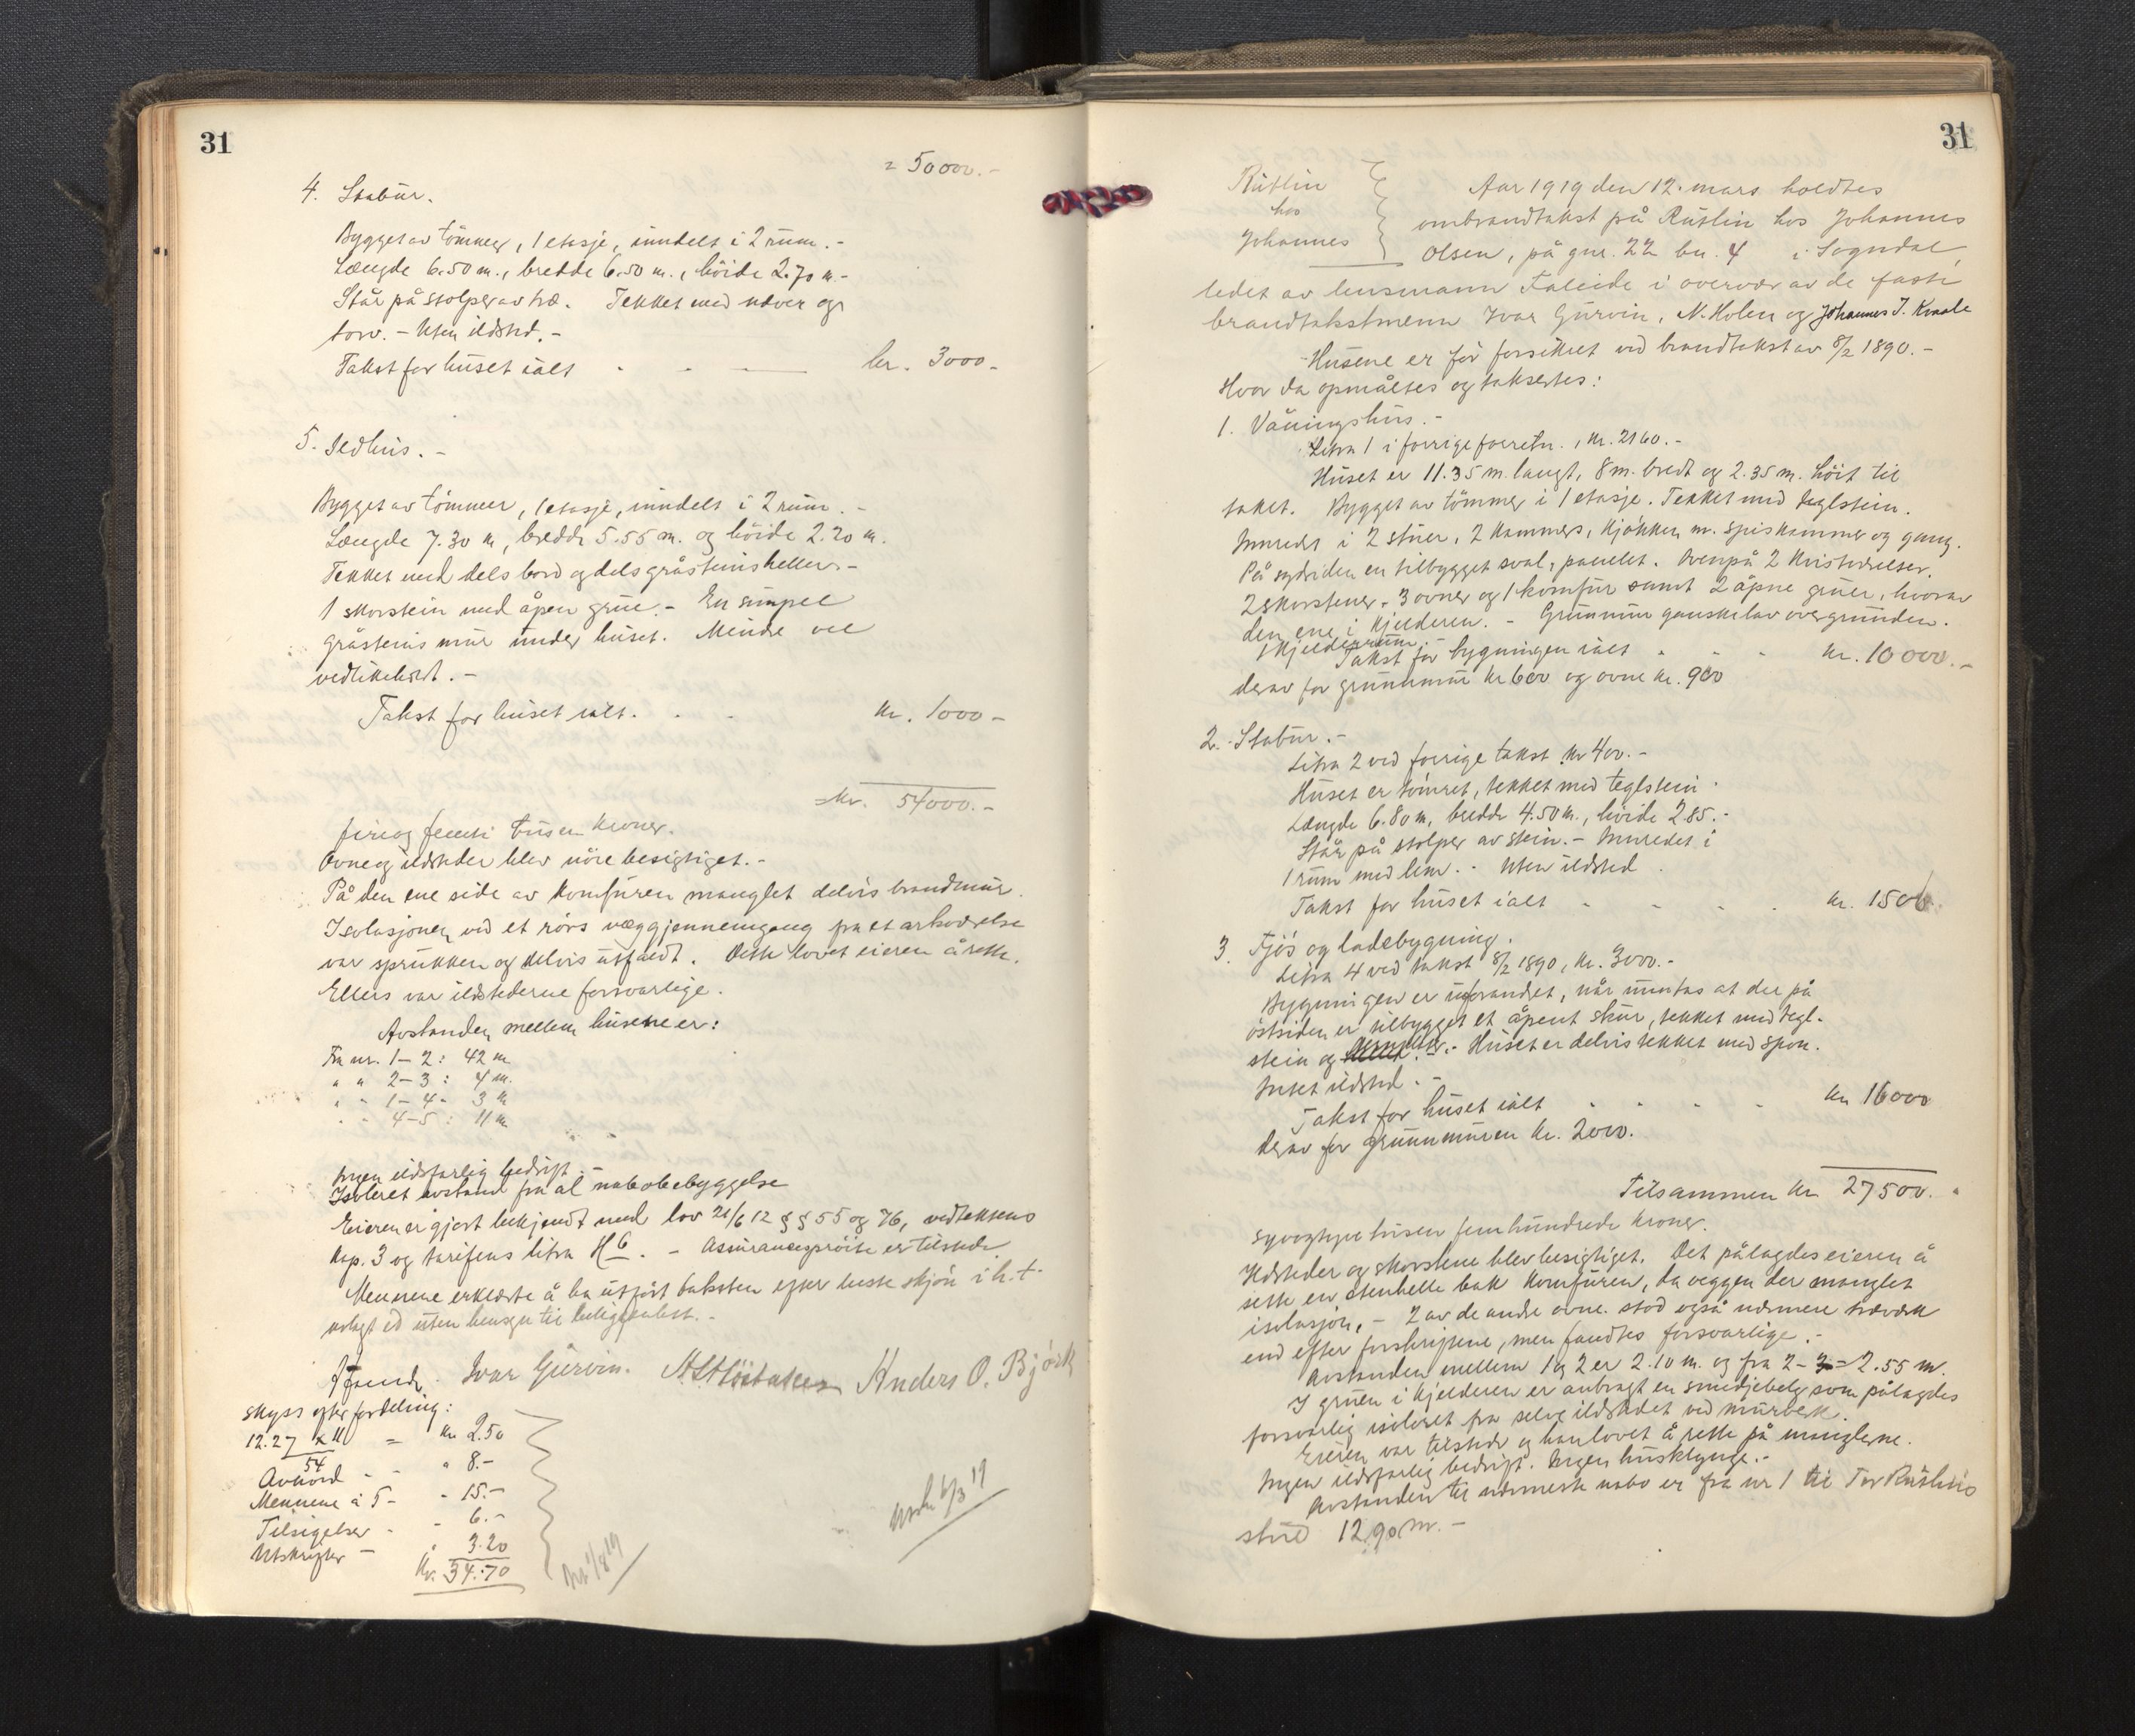 31
= 50000.-
4. Stabur.
Bygget av tømmer, 1 etasje, inndelt i 2 rum.-
Længde 6.50 m., bredde 6.50 m., höide 2.70 m.-
Står på stolper av træ. Tekket med næver og
torv.- Uten ildsted.-
Takst for huset ialt - - - kr. 3000.-
5. Ildhus.-
Bygget av tömmer, 1 etasje, inndelt i 2 rum.-
Længde 7.30 m, bredde 5.55 m. og höide 2.20 m.
Tekket med dels bord og dels gråsteinsheller.-
1 skorstein med åpen grue.- En simpel
gråsteins mur under huset. Mindre vel
vedlikeholdt.-
Takst for huset ialt. - - kr. 1000-
= kr. 54000.-
fireog femti tusen kroner.
Ovne og ildsteder blev nöie besigtiget.-
På den ene side av komfuren manglet delvis brandmur.
Isolasjonen ved et rörs væggjennemgang fra et arkværelse
var sprukken og delvis utfaldt. Dette lovet eieren å rette.
Ellers var ildstederne forsvarlige.
Avstanden mellem husene er:
Fra nr. 1-2: 42 m
" " 2-3: 4 m.
" " 1-4- 3 m
" " 4-5: 11 m
Ingen ildsfarlig bedrift.-
Isoleret avstand fra al nabobebyggelse
Eieren er gjort bekjendt med lov 21/6 12 § § 55 og 76, vedtektens
kap. 3 og tarifens litra H 6. - Assuransespröite er tilstede.
Mennene erklærte å ha utfört taksten efter beste skjön i h. t.
avlagt ed uten hensyn til beliggenhet.-
Ivar Gurvin. Anders O. Björk
Skyss efter fordeling:
12.27 x 11 = kr 2.50
54
Avhörd - - " 8.-
Mennene à 5- - 15.-
Tilsigelser - - 6.-
Utskrifter - " 3.20
Kr. 34.70
31
Rutlin
hos
Johannes
Aar 1919 den 12. mars holdtes
ombrandtakst på Rutlin hos Johannes
Olsen, på gnr. 22 bn. 4 i Sogndal,
ledet av lensmann Faleide i overvær av de faste
brandtakstmenn Ivar Gurvin, N. Holen og Johannes J. Kvaale
Husene er för forsikret ved brandtakst av 8/2 1890.-
Hvor da opmåltes og taksertes:
1. Våningshus.-
Litra 1 i forrige forretn., kr. 2160.-
Huset er 11.35 m. langt, 8 m. bredt og 2.35 m. höit til
taket. Bygget av tömmer i 1 etasje. Tekket med teglstein.
Innredet i 2 stuer, 2 kammers, kjökken m. spiskammer og gang.
På sydsiden en tilbygget sval, panelet. Ovenpå 2 kvistværelser.
2 skorstener, 3 ovner og 1 komfur samt 2 åpne gruer, hvorav
den ene i kjelderen.- Grunnmur ganske lav over grunden.
1 kjelderrum.-
Takst for bygningen ialt - - - kr. 10 000.-
derav for grunnmur kr 600 og ovne kr. 900
2. Stabur.-
Litra 2 ved forrige takst kr 400.-
Huset er tömret, tekket med teglstein.
Længde 6.80 m, bredde 4.50 m., höide 2.85.-
Står på stolper av stein.- Innredet i
1 rum med lem.- Uten ildsted.
Takst for huset ialt - - - - kr. 1500.
3. Fjös og ladebygning.
Litra 4 ved takst 8/2 1890, kr. 3000.-
Bygningen er uforandret, når unntas at der på
östsiden er tilbygget et åpent skur, tekket med tegl-
stein og Huset er delvis tekket med spon.
Intet ildsted.-
Takst for huset ialt - - - - kr 16000
derav for grunnmuren kr. 2000.
Tilsammen kr 27500.-
syvogtyve tusen femhundrede kroner.
Ildsteder og skorstene blev besigtiget. Det pålagdes eieren å
sette en stenhelle bak komfuren, da veggen der manglet
isolasjon.- 2 av de andre ovne stod også nærmere træværk
end efter forskriftene, men fandtes forsvarlige.-
Avstanden mellem 1 og 2 er 2.10 m. og fra 2-3= 2.55 m.
I gruen i kjelderen er anbragt en smidjebelg som pålagdes
forsvarlig isoleret fra selve ildstedet ved murverk.
Eieren var tilstede og han lovet å rette på manglerne.
Ingen ildsfarlig bedrift. Ingen husklynge.-
Avstanden til nærmeste nabo er fra nr 1 til Tor Rutlins
stue 12.90 m.-